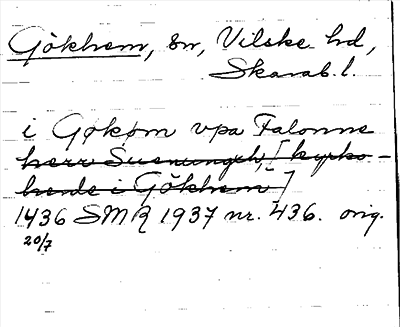 Gökhem, sn, Vilske hd,
Skarab. l.
i Gøkøm vpa Falonne
herr Suenungh, [kyrko-
herde i Gökhem]
1436 SMR 1937 nr. 436. orig.
20/7